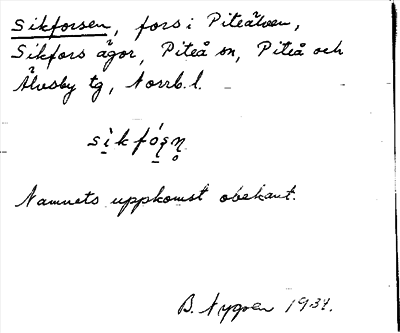 Sikforsen, fors i Piteälven,
Sikfors ägor, Piteå sn, Piteå och
Älvsby tg, Norrb. l.
sìkfó̠ṣn̥
Namnets uppkomst obekant.
B. Nygren 1937.